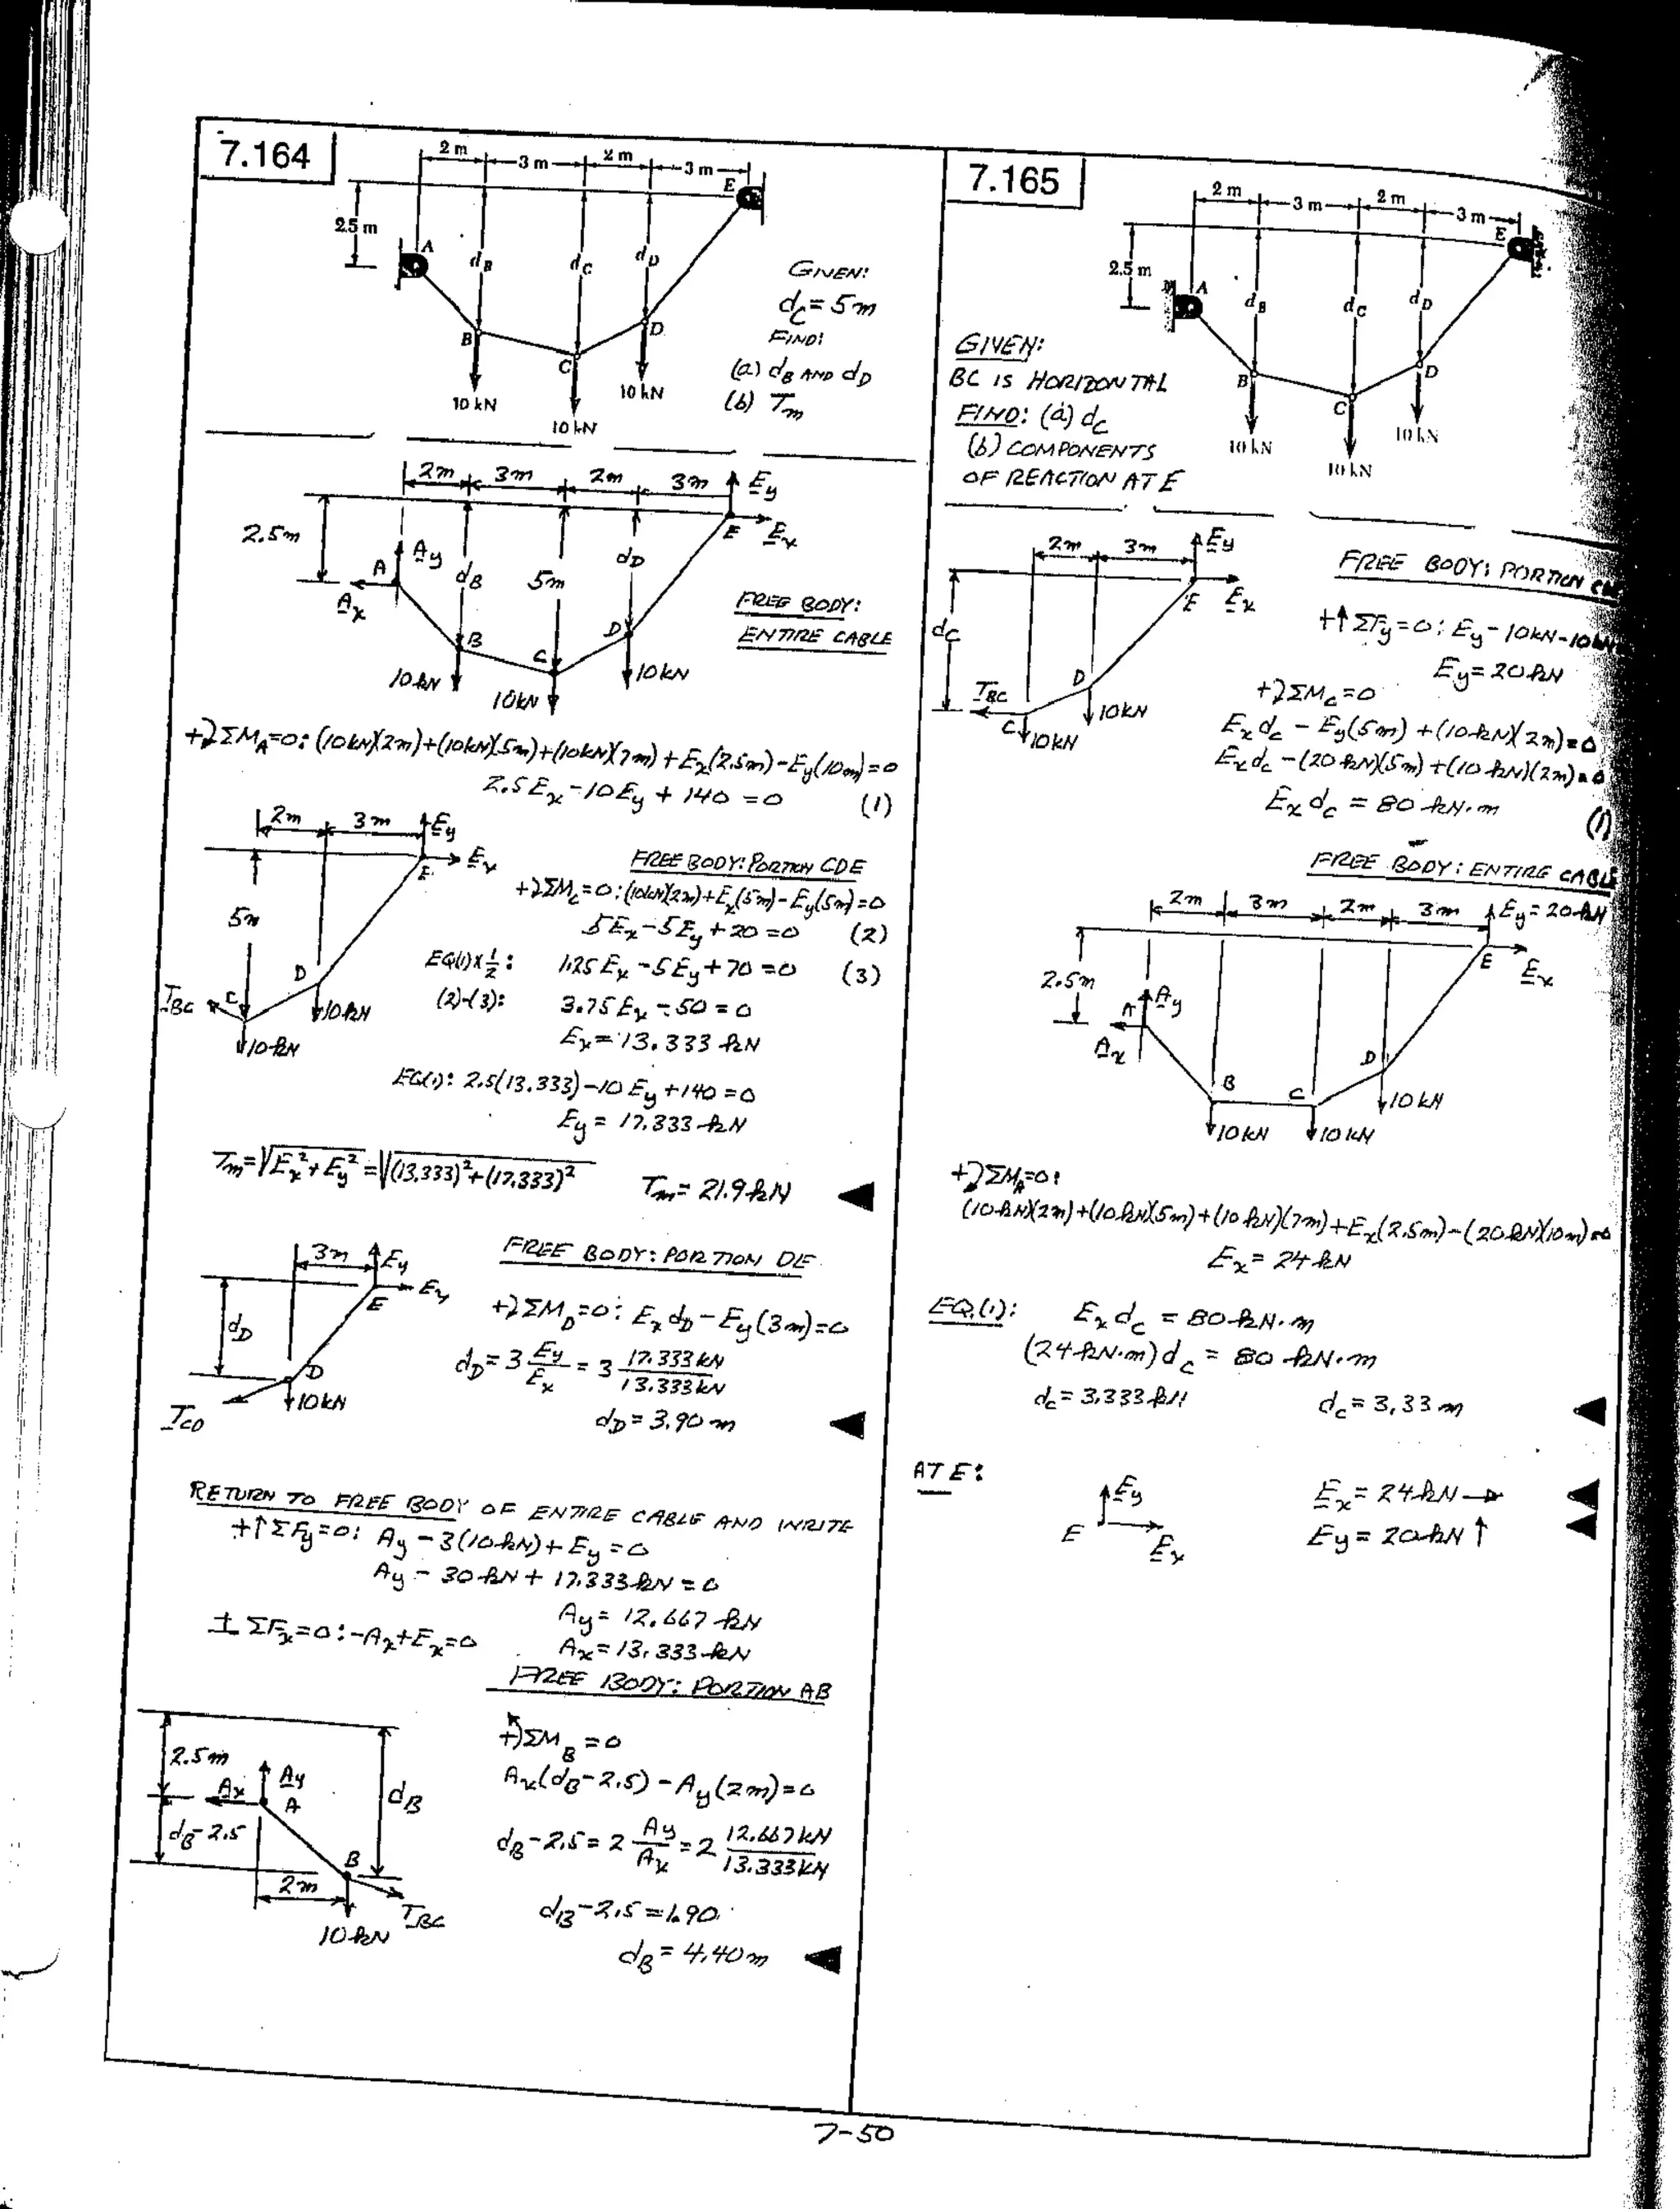 7.164
2 m
3 m
2 m
3 m
E
2.5 m
A
dB
dC
dD
B
C
D
10 kN
10 kN
10 kN
GIVEN:
dC = 5 m
FIND:
(a) dB AND dD
(b) Tm
2m 3m 2m 3m Ey
2.5m
A Ay dB 5m dD E Ex
Ax
B C D
10kN 10kN 10kN
FREE BODY:
ENTIRE CABLE
+↓ΣMA=0: (10kN)(2m)+(10kN)(5m)+(10kN)(7m)+Ex(2.5m)-Ey(10m)=0
2.5Ex-10Ey + 140 = 0 (1)
2m 3m Ey
E Ex
5m
TBC C D 10kN
10kN
FREE BODY: PORTION CDE
+ΣMC=0: (10kN)(2m)+Ex(5m)-Ey(5m)=0
5Ex-5Ey+20=0 (2)
EQ(1)x½: 1.25Ex-5Ey+70=0 (3)
(2)-(3): 3.75Ex-50=0
Ex=13.333 kN
EQ(1): 2.5(13.333)-10Ey+140=0
Ey = 17.333 kN
Tm=√Ex²+Ey² = √(13.333)²+(17.333)² Tm= 21.9 kN
3m Ey
E Ex
dD
D
10kN
TCD
FREE BODY: PORTION DE
+ΣMD=0: Ex dD-Ey(3m)=0
dD=3 Ey/Ex = 3 17.333kN/13.333kN
dD=3.90 m
RETURN TO FREE BODY OF ENTIRE CABLE AND WRITE
+↑ΣFy=0: Ay-3(10kN)+Ey=0
Ay-30kN+17.333kN=0
Ay= 12.667 kN
+ΣFx=0: -Ax+Ex=0 Ax=13.333 kN
FREE BODY: PORTION AB
2.5m
Ax Ay
A dB
dB-2.5
B
2m
10kN TBC
+ΣMB=0
Ax(dB-2.5)-Ay(2m)=0
dB-2.5=2 Ay/Ax=2 12.667kN/13.333kN
dB-2.5=1.90
dB=4.40m
7.165
2 m
3 m
2 m
3 m
E
2.5 m
A
dB
dC
dD
B
C
D
10 kN
10 kN
10 kN
GIVEN:
BC IS HORIZONTAL
FIND: (a) dC
(b) COMPONENTS
OF REACTION AT E
2m 3m Ey
E Ex
dC
TBC D
C 10kN 10kN
FREE BODY: PORTION
+↑ΣFy=0: Ey-10kN-10kN
Ey=20kN
+ΣMC=0
Ex dC-Ey(5m)+(10kN)(2m)=0
Ex dC-(20kN)(5m)+(10kN)(2m)=0
Ex dC = 80 kN·m (1)
FREE BODY: ENTIRE CABLE
2m 3m 2m 3m Ey=20kN
2.5m
A Ay E Ex
Ax
B C D
10kN 10kN 10kN
+ΣMA=0:
(10kN)(2m)+(10kN)(5m)+(10kN)(7m)+Ex(2.5m)-(20kN)(10m)=0
Ex=24kN
EQ.(1): Ex dC = 80kN·m
(24kN·m)dC = 80 kN·m
dC=3.333kN dC=3.33 m
AT E:
Ey
E Ex
Ex=24kN→
Ey=20kN↑
7-50